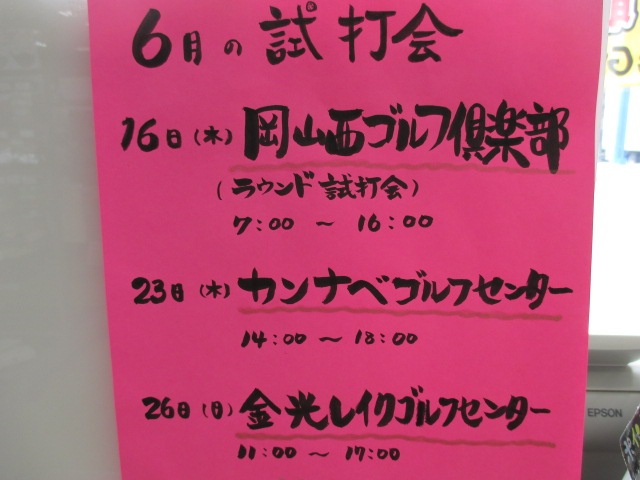 6月の試打会
16日(木)岡山西ゴルフ倶楽部
(ラウンド試打会)
7:00 ~ 16:00
23日(木)カンナベゴルフセンター
14:00 ~ 18:00
26日(日)金光レイクゴルフセンター
11:00 ~ 17:00
EPSON